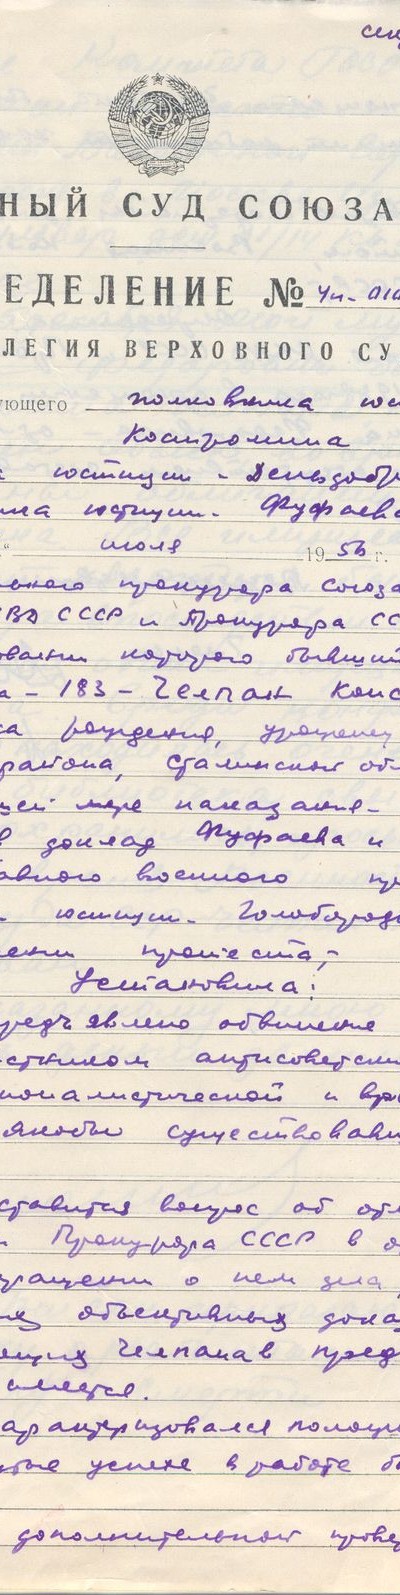 НЫЙ СУД СОЮЗА
ЕДЕЛЕНИЕ № 4н-
ЛЕГИЯ ВЕРХОВНОГО СУ
ующего полковника юс
Костромина
а юстиции - Дементь
ика юстиции - Фуфаева
" июля 1956 г.
ьного прокурора Союза
ВД СССР и Прокурора СС
овании которого бывший
а - 183 - Челпан Конс
ка рождения, уроженец
района, Сталинской об
шей мере наказания -
в доклад Фуфаева и
авного военного пр
юстиции - Голобород
ении протеста, -
Установила:
редъявлено обвинение
стником антисоветск
ионалистической и вр
якобы существовавш
ставится вопрос об от
и Прокурора СССР в о
кращении о нем дела,
их объективных дока
ющих Челпана в пред
имеется.
арактеризовался полож
тые успехи в работе б
дополнительной прове